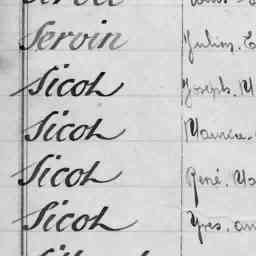 Servin Julien.
Sicot Joseph. M
Sicot Maurice.
Sicot René. Ma
Sicot Yves. an